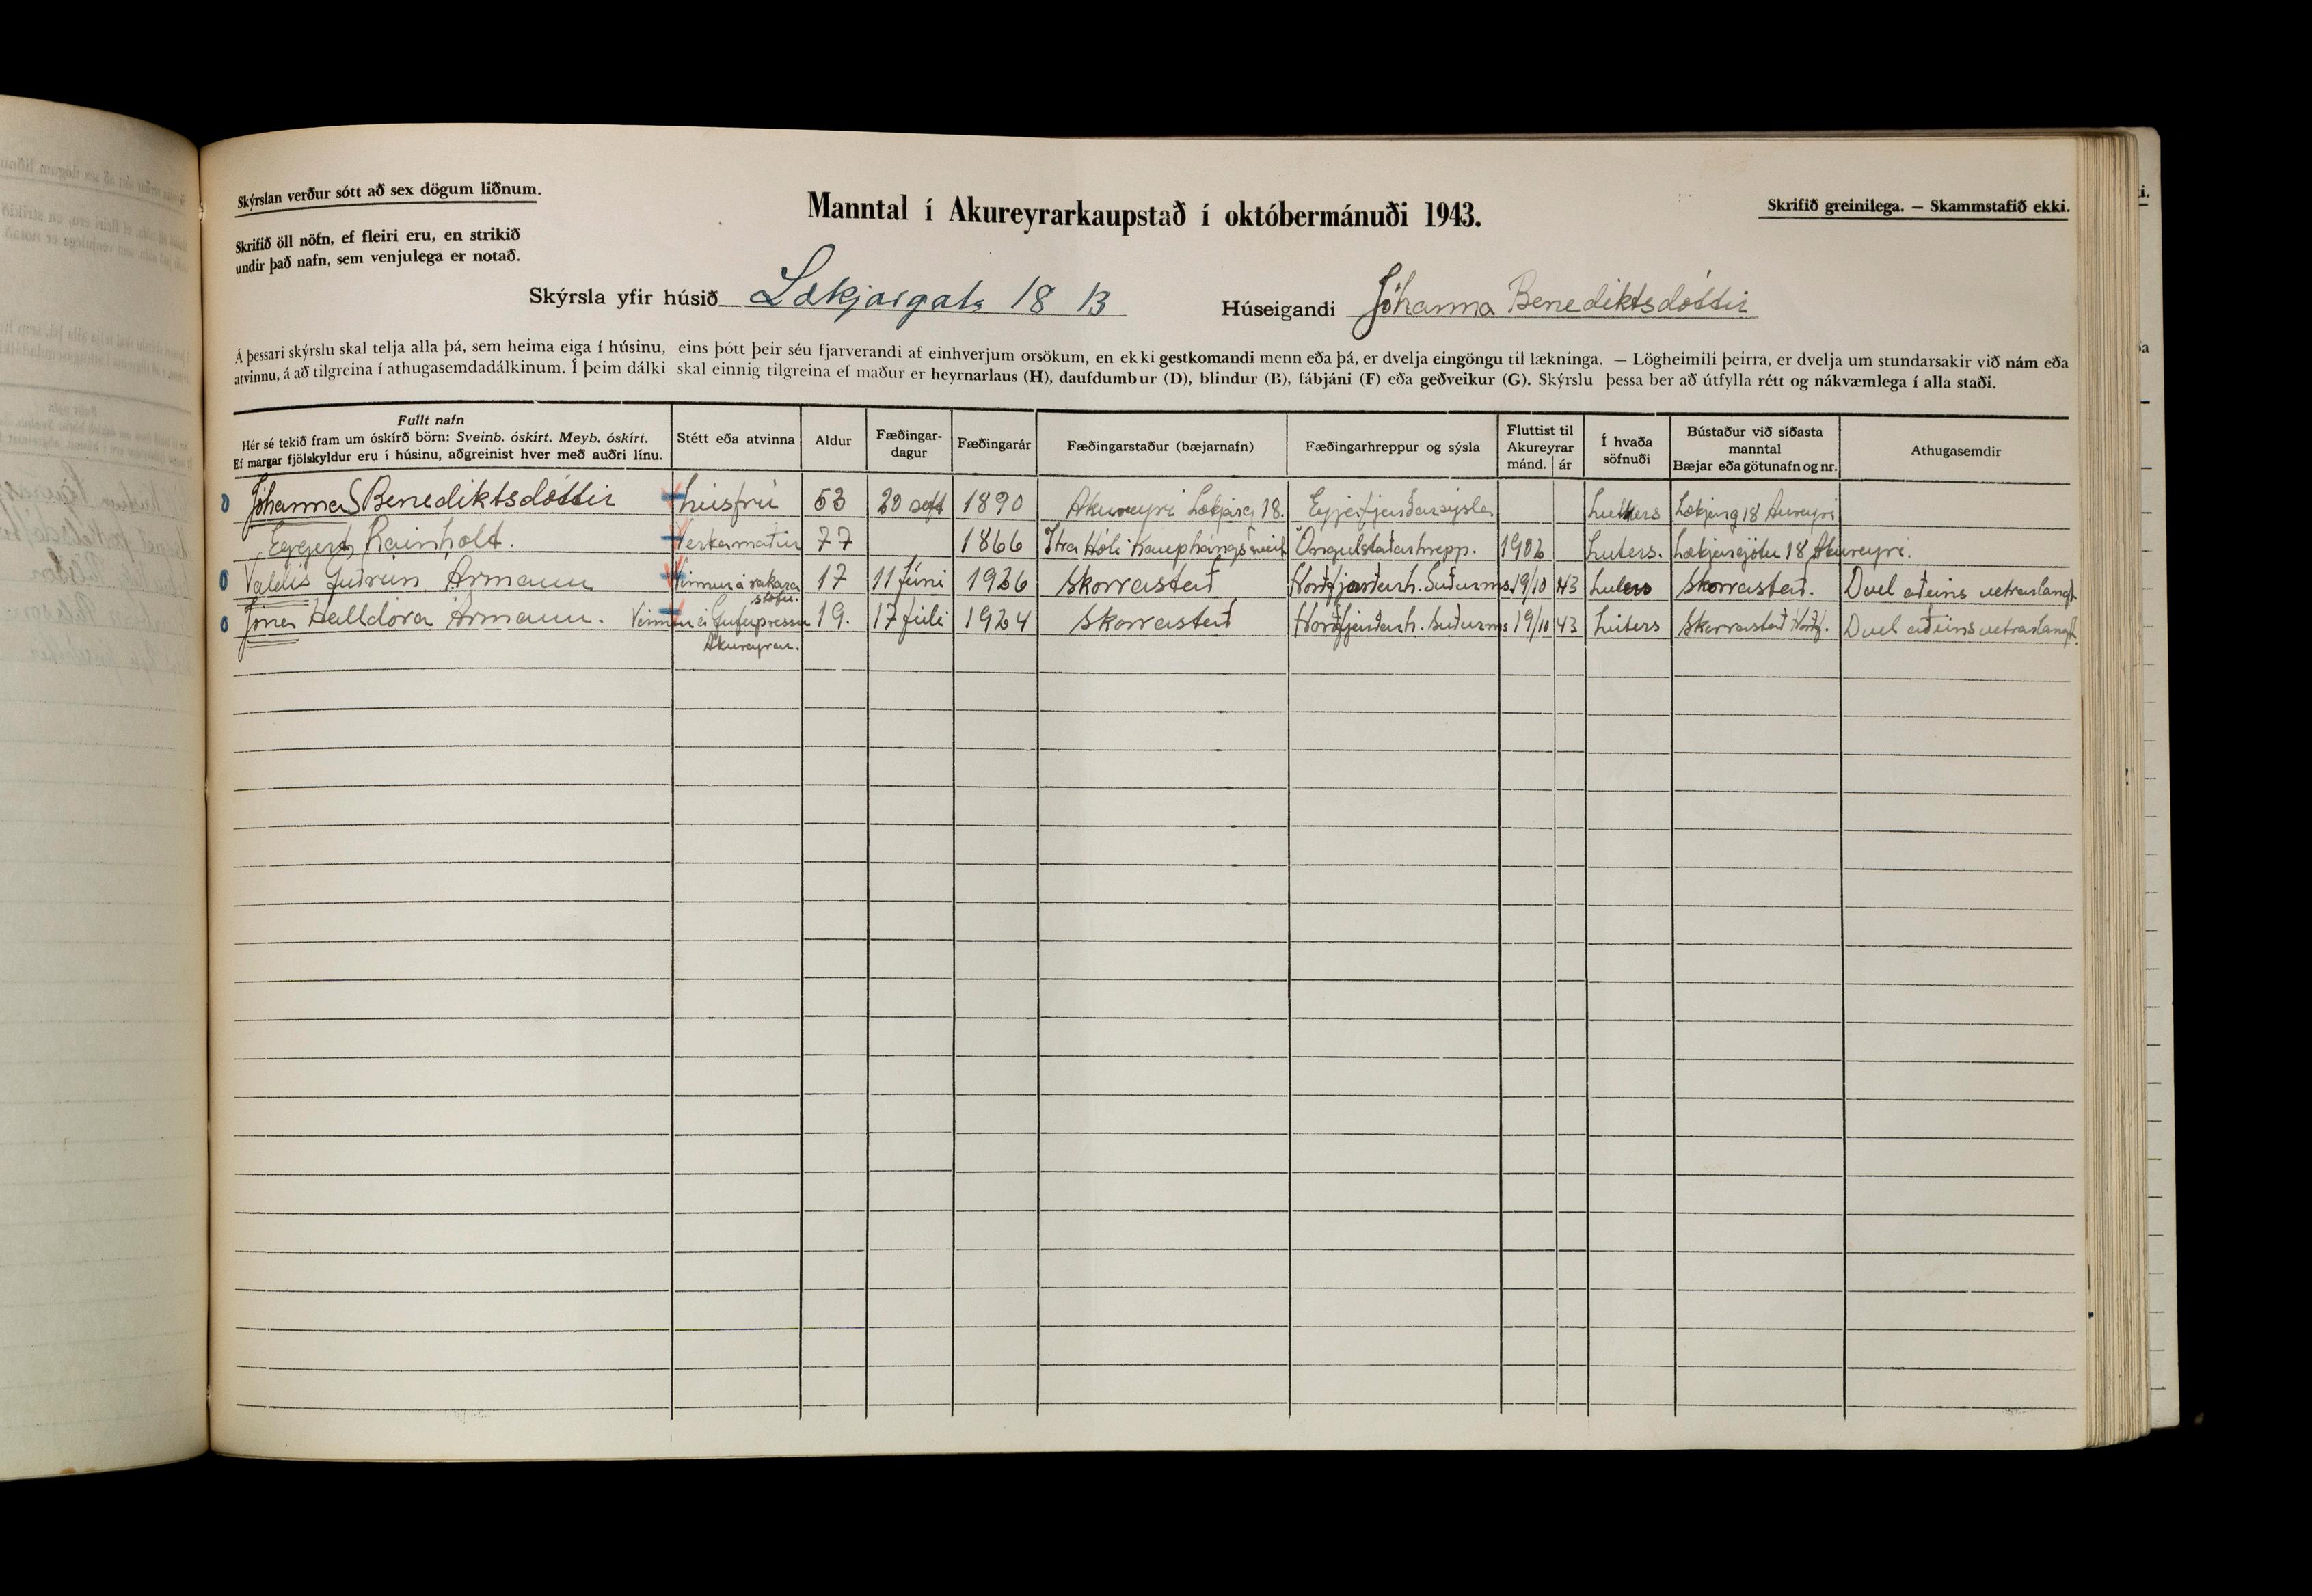 Skýrslan verður sótt að sex dögum liðnum.
Manntal í Akureyrarkaupstað í októbermánuði 1943.
Skrifið greinilega. — Skammstafið ekki.
Skrifið öll nöfn, ef fleiri eru, en strikið
undir það nafn, sem venjulega er notað.
Skýrsla yfir húsið Lækjargata 18 B Húseigandi Jóhanna Benediktsdóttir
Á þessari skýrslu skal telja alla þá, sem heima eiga í húsinu, eins þótt þeir séu fjarverandi af einhverjum orsökum, en ekki gestkomandi menn eða þá, er dvelja eingöngu til lækninga. — Lögheimili þeirra, er dvelja um stundarsakir við nám eða
atvinnu, á að tilgreina í athugasemdadálkinum. Í þeim dálki skal einnig tilgreina ef maður er heyrnarlaus (H), daufdumbur (D), blindur (B), fábjáni (F) eða geðveikur (G). Skýrslu þessa ber að útfylla rétt og nákvæmlega í alla staði.
Fullt nafn
Hér sé tekið fram um óskírð börn: Sveinb. óskírt. Meyb. óskírt.
Ef margar fjölskyldur eru í húsinu, aðgreinist hver með auðri línu.
Stétt eða atvinna
Aldur
Fæðingar-
dagur
Fæðingarár
Fæðingarstaður (bæjarnafn)
Fæðingarhreppur og sýsla
Fluttist til
Akureyrar
mánd. ár
Í hvaða
söfnuði
Bústaður við síðasta
manntal
Bæjar eða götunafn og nr.
Athugasemdir
Jóhanna S Benediktsdóttir húsfrú 53 20 sept 1890 Akureyri Lækjarg 18. Eyjafjarðarsýsla Luters Lækjarg 18 Aureyri
Eggert Reinholt. Verkamaður 77 1866 Itra Hóli Kauphangs sveit Öngulstaðarhrepp. 1902 Luters. Lækjargötu 18 Akureyri.
Valdís Guðrún Ármann Vinnur á rakara 17 11 júni 1926 Skorrastað Norðfjarðarh. Suðurms. 19/10 43 Luters Skorrastað. Dvel aðeins vetrarlangt
stofu.
Jóna Halldóra Ármann. Vinnur á Gufupressu 19. 17 júli 1924 Skorrastað Norðfjarðarh. Suðurms 19/10 43 Luters Skorrastað Norðf. Dvel aðeins vetrarlangt.
Akureyrar.